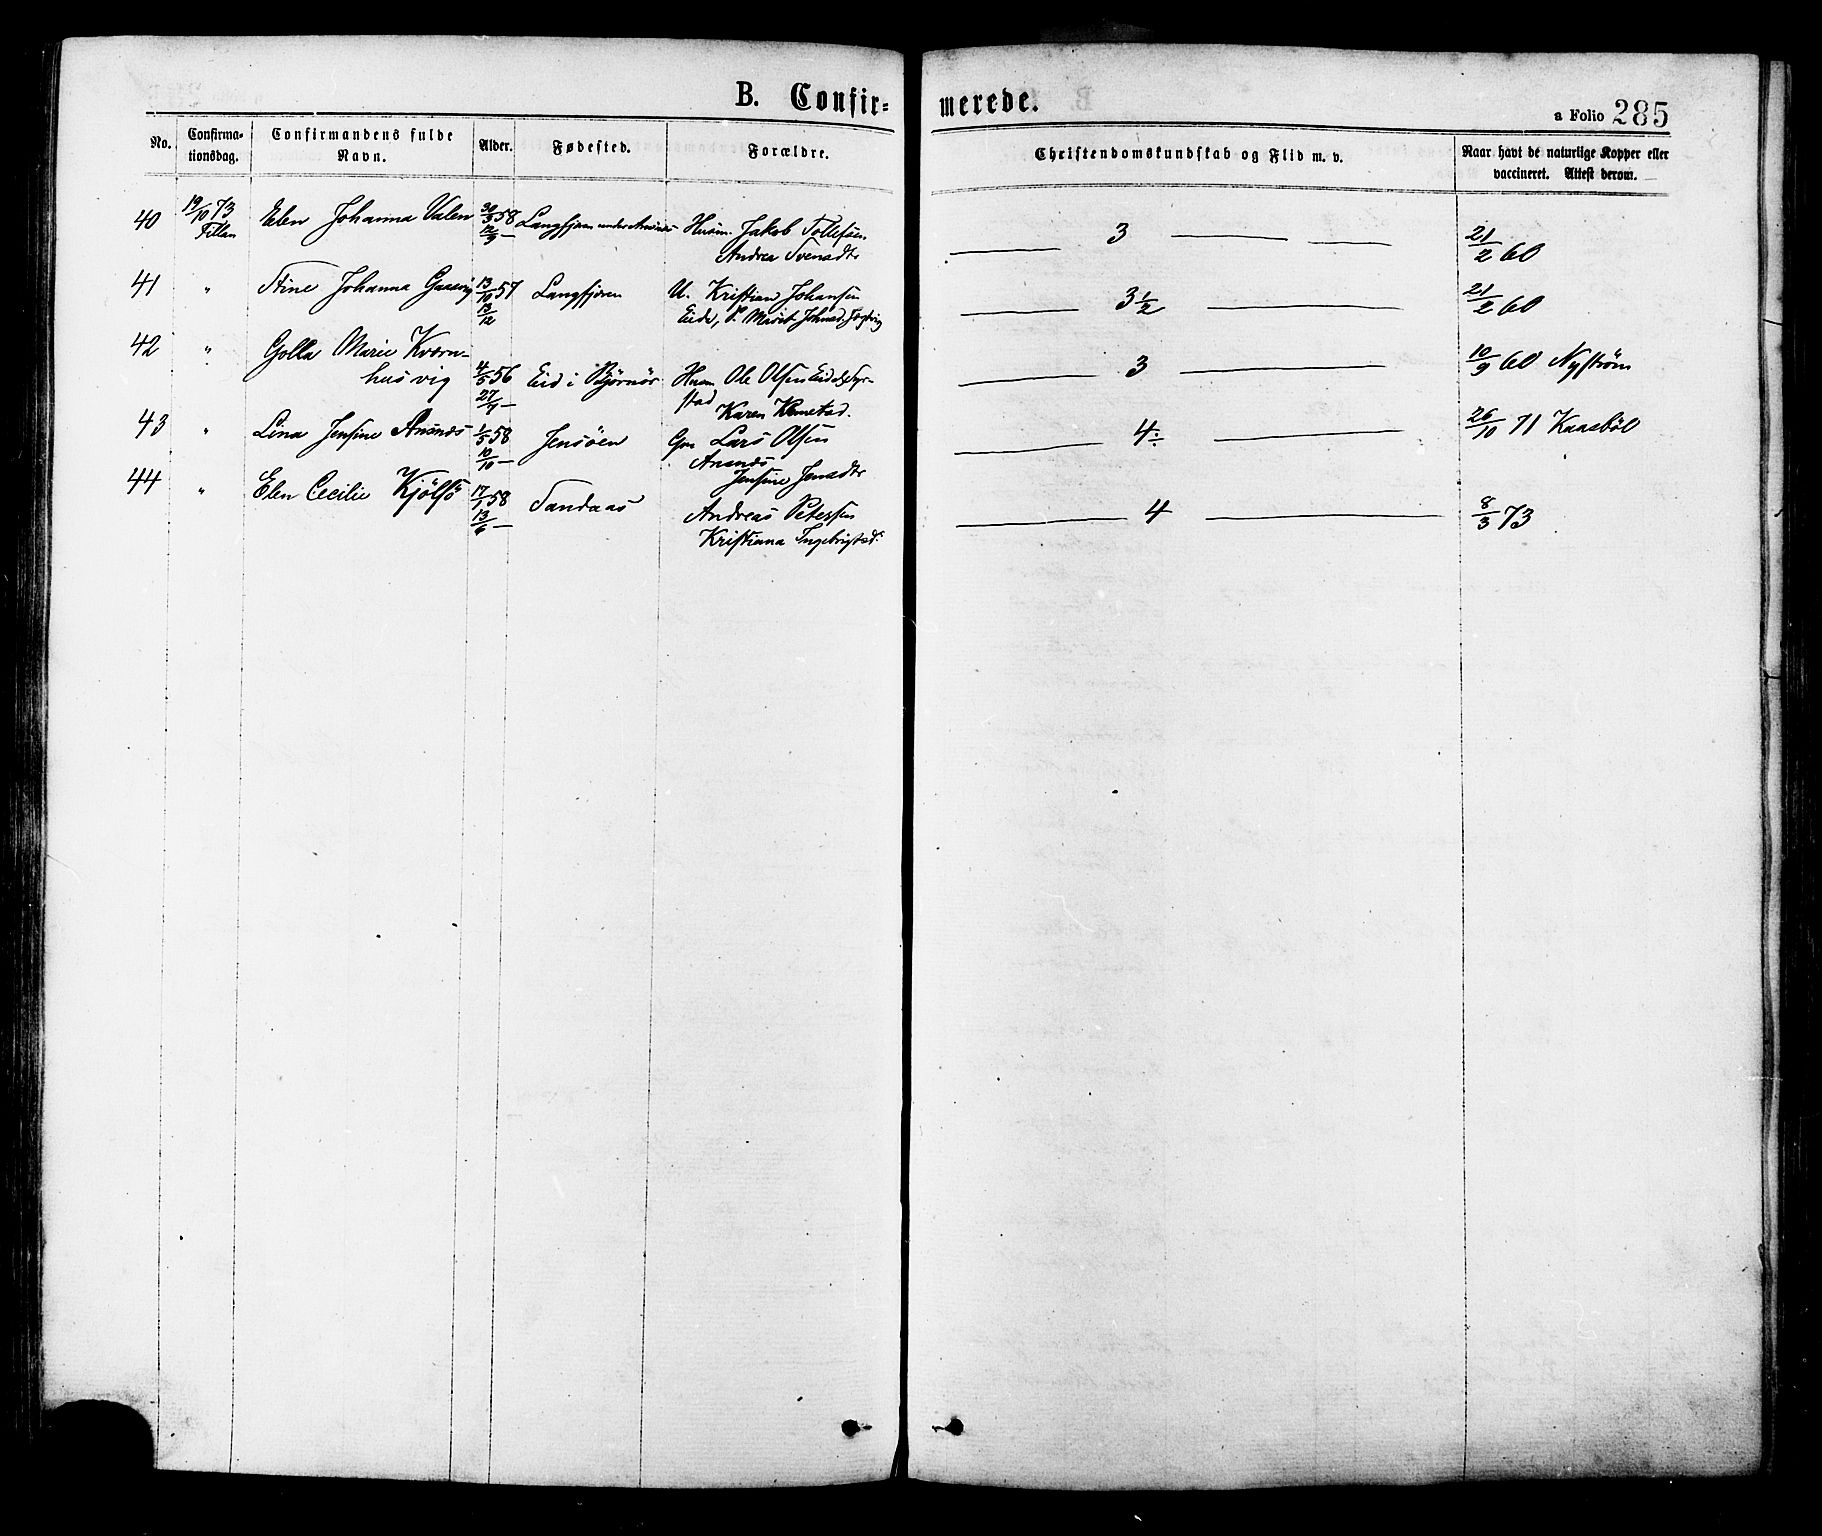 B. Confir=
merede.
a Folio 285
No.
Confirma-
tionsdag.
Confirmandens fulde
Navn.
Alder.
Fødested.
Forældre.
Christendomskundskab og Flid m. v.
Naar havt de naturlige Kopper eller
vaccineret. Attest derom.
40 19/10 73 Elen Johanna Valen 30/3 58 Langfjoren under Husm. Jakob Tollefsen 3 21/2 60
Fillan 12/9 — Andrea Svensdtr
41 " Stine Johanna 13/10 57 Langfjoren U. Kristian Johansen 3½ 21/2 60
13/12 Eide, P. Marit Johnsd.
42 " Golla Marie Kværn-
husvig 4/5 56 Eid i Bjørnør Husm. Ole Olsen 3 10/9 60 Nystrøm
27/7 — stad
Karen
43 " Lina Jensine Ansnæs 1/5 58 Jensøen Gm Lars Olsen 4÷ 26/10 71 Kaasbøl
10/10 — Ansnæs
Jensine Jensdtr
44 " Elen Cecilie Kjølsø 17/1 58 Sandaas Andreas Petersen 4 8/3 73
13/6 — Kristiana Ingebrigtsd.